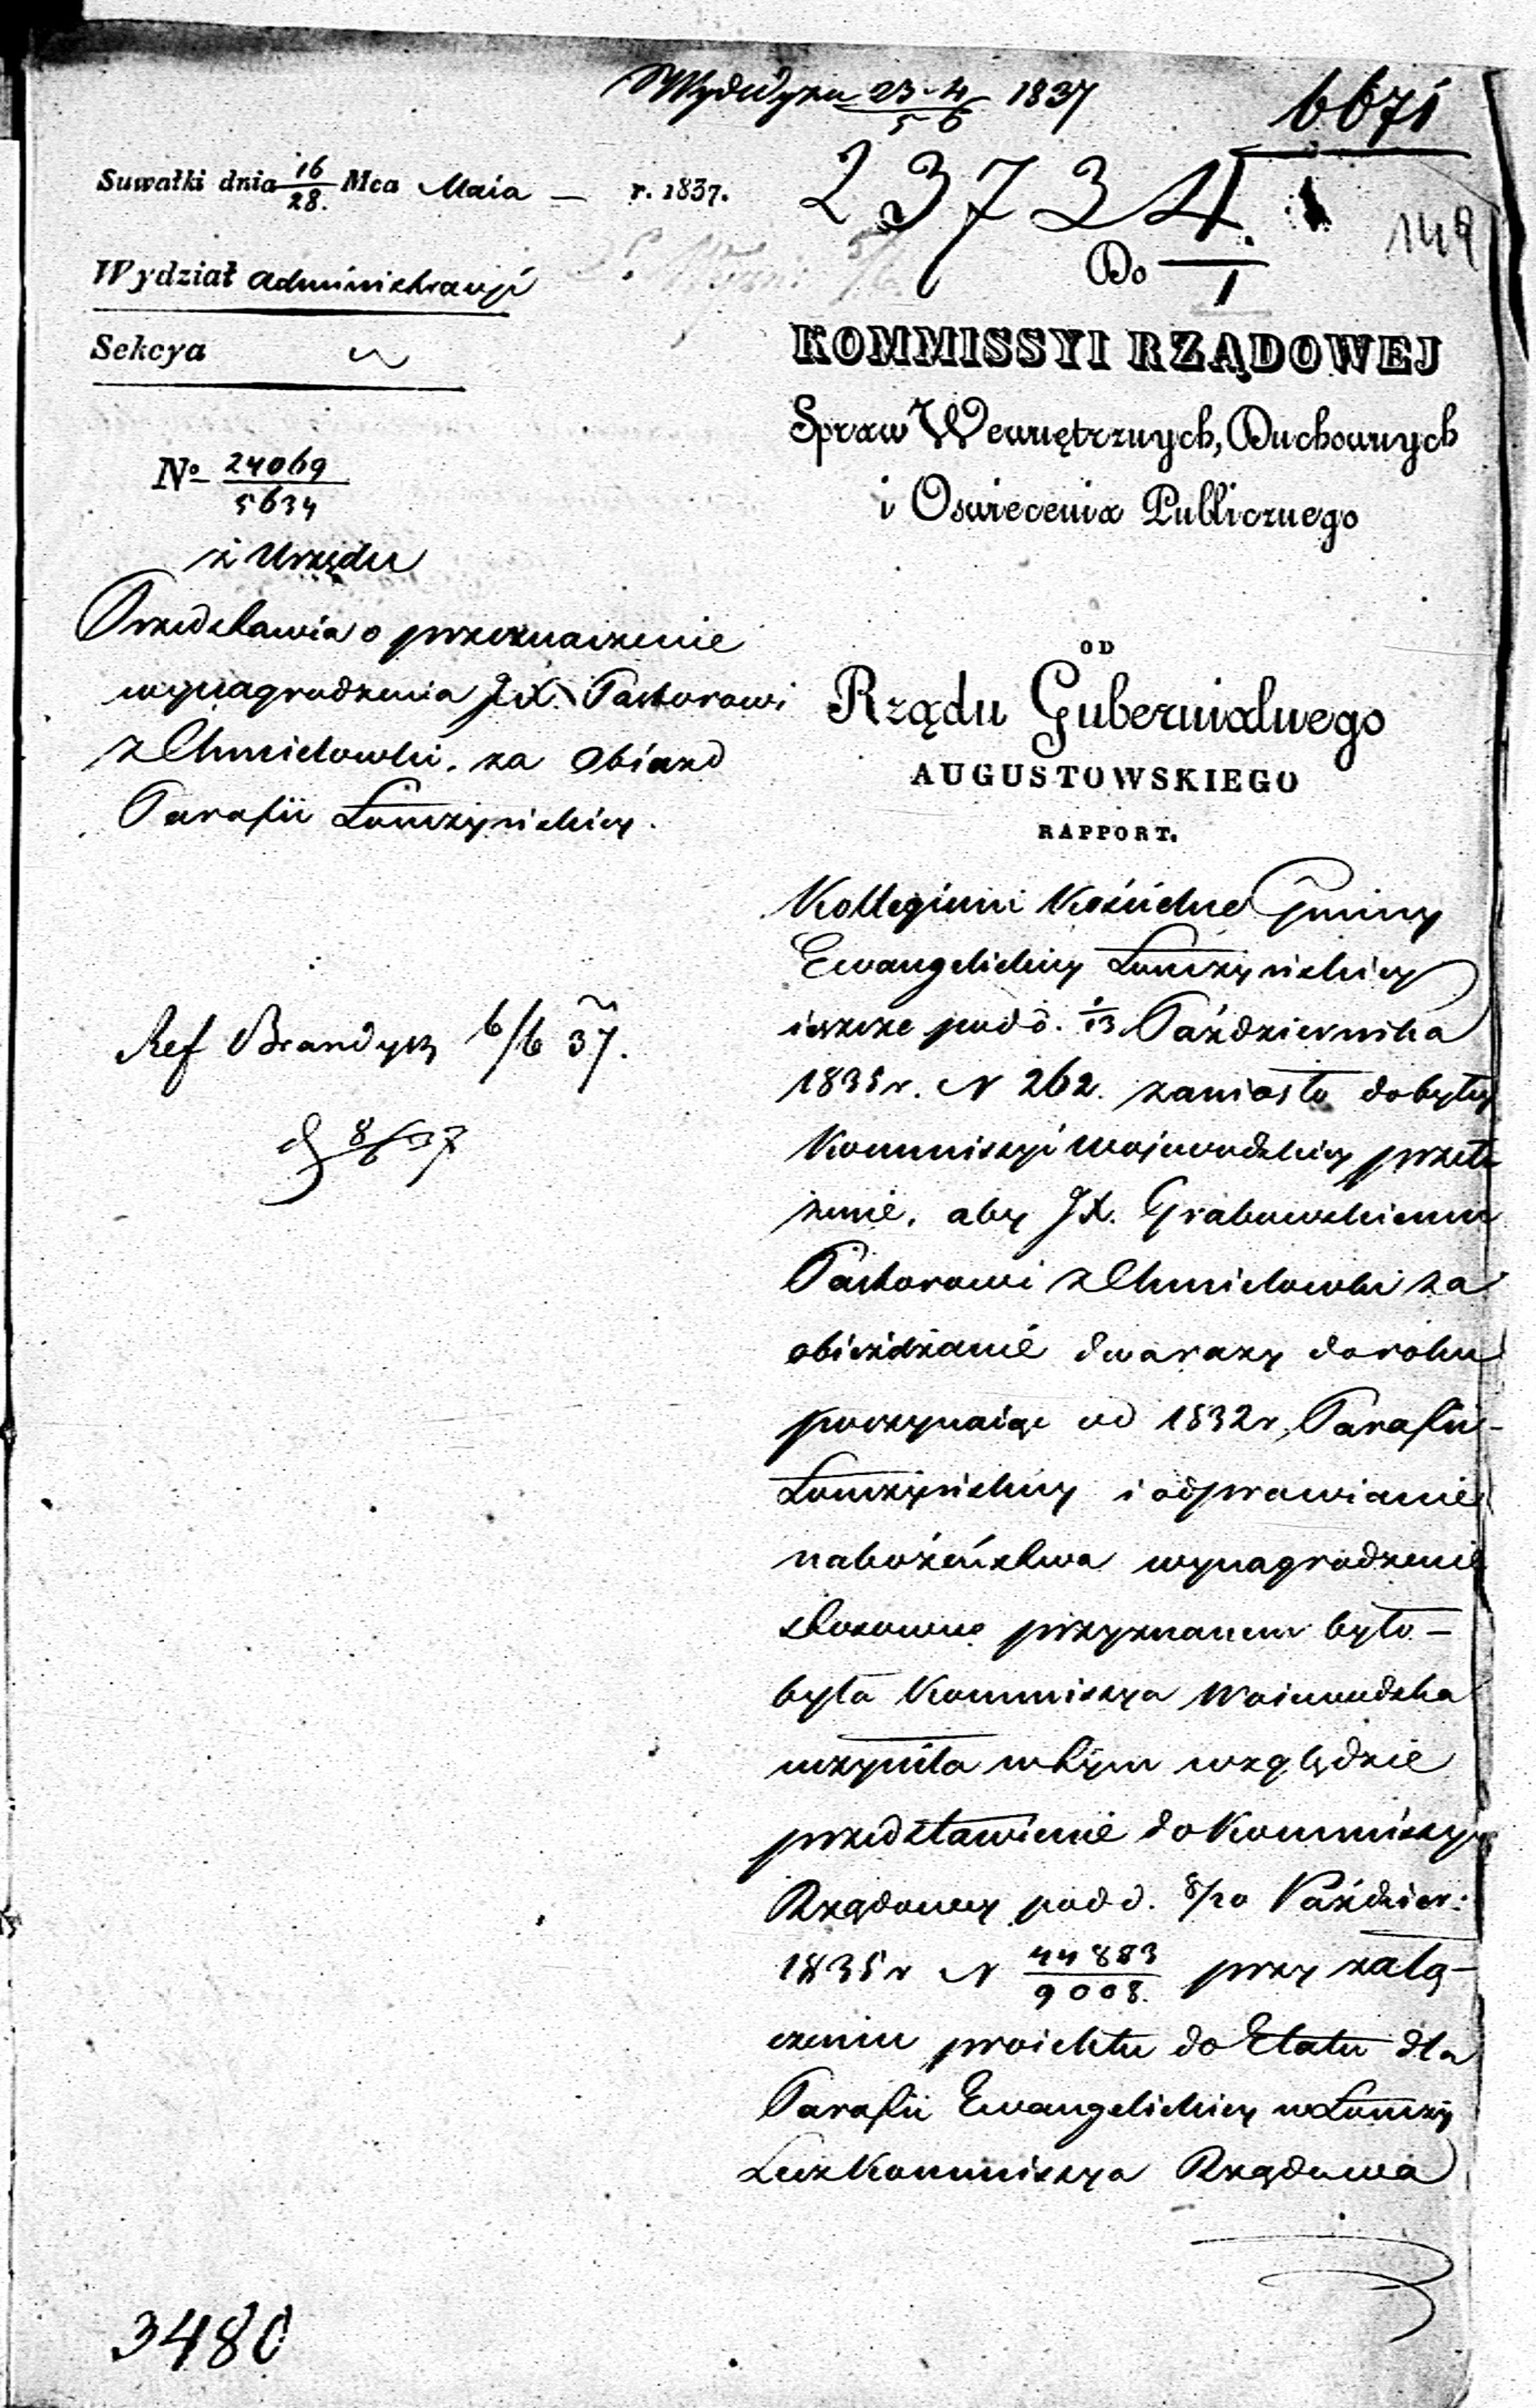 23-4/5 6 1837
6671
23734
149
Suwałki dnia 16/28. Mca Maia — r. 1837.
Do
I
Wydział Administracyi
Sekcya
KOMMISSYI RZĄDOWEJ
Spraw Wewnętrznych, Duchownych
i Oswiecenia Publicznego
No 24069/5634
z Urzędu
Przedstawia o przeznaczenie
wynagrodzenia JX. Pastorowi
z Chmielowki. za Obiazd
Parafii Łomżyńskiey.
OD
Rządu Gubernialnego
AUGUSTOWSKIEGO
RAPPORT.
Kollegium Kościelne Gminy
Ewangelickiey Łomżyńskiey
ieszcze pod d. 1/13 Października
1835 r. N 262. zaniosło do byłey
Kommissyi Wojewodzkiey przeło
żenie, aby JX. Grabowskiemu
Pastorowi z Chmielowki za
obieżdżanie dwa razy do roku
poczynaiąc od 1832 r. Parafii
Łomżyńskiey i odprawianie
nabożeństwa wynagrodzenie
stosowne przyznanem było —
była Kommissya Woiewodzka
uczyniła w tym względzie
przedstawienie do Kommissyi
Rządowey pod d. 8/20 Paździer:
1835 r N 44883/9008. przy załą-
czeniu proiektu do Etatu dla
Parafii Ewangelickiey w Łomży
Lecz Kommissya Rządowa
Ref Brandysz 6/6 37.
8/6 37
3480